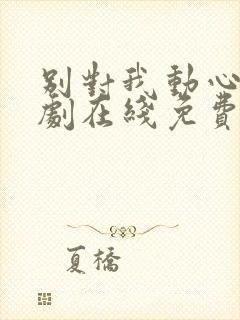 別對我動心
劇在綫免費
夏橋